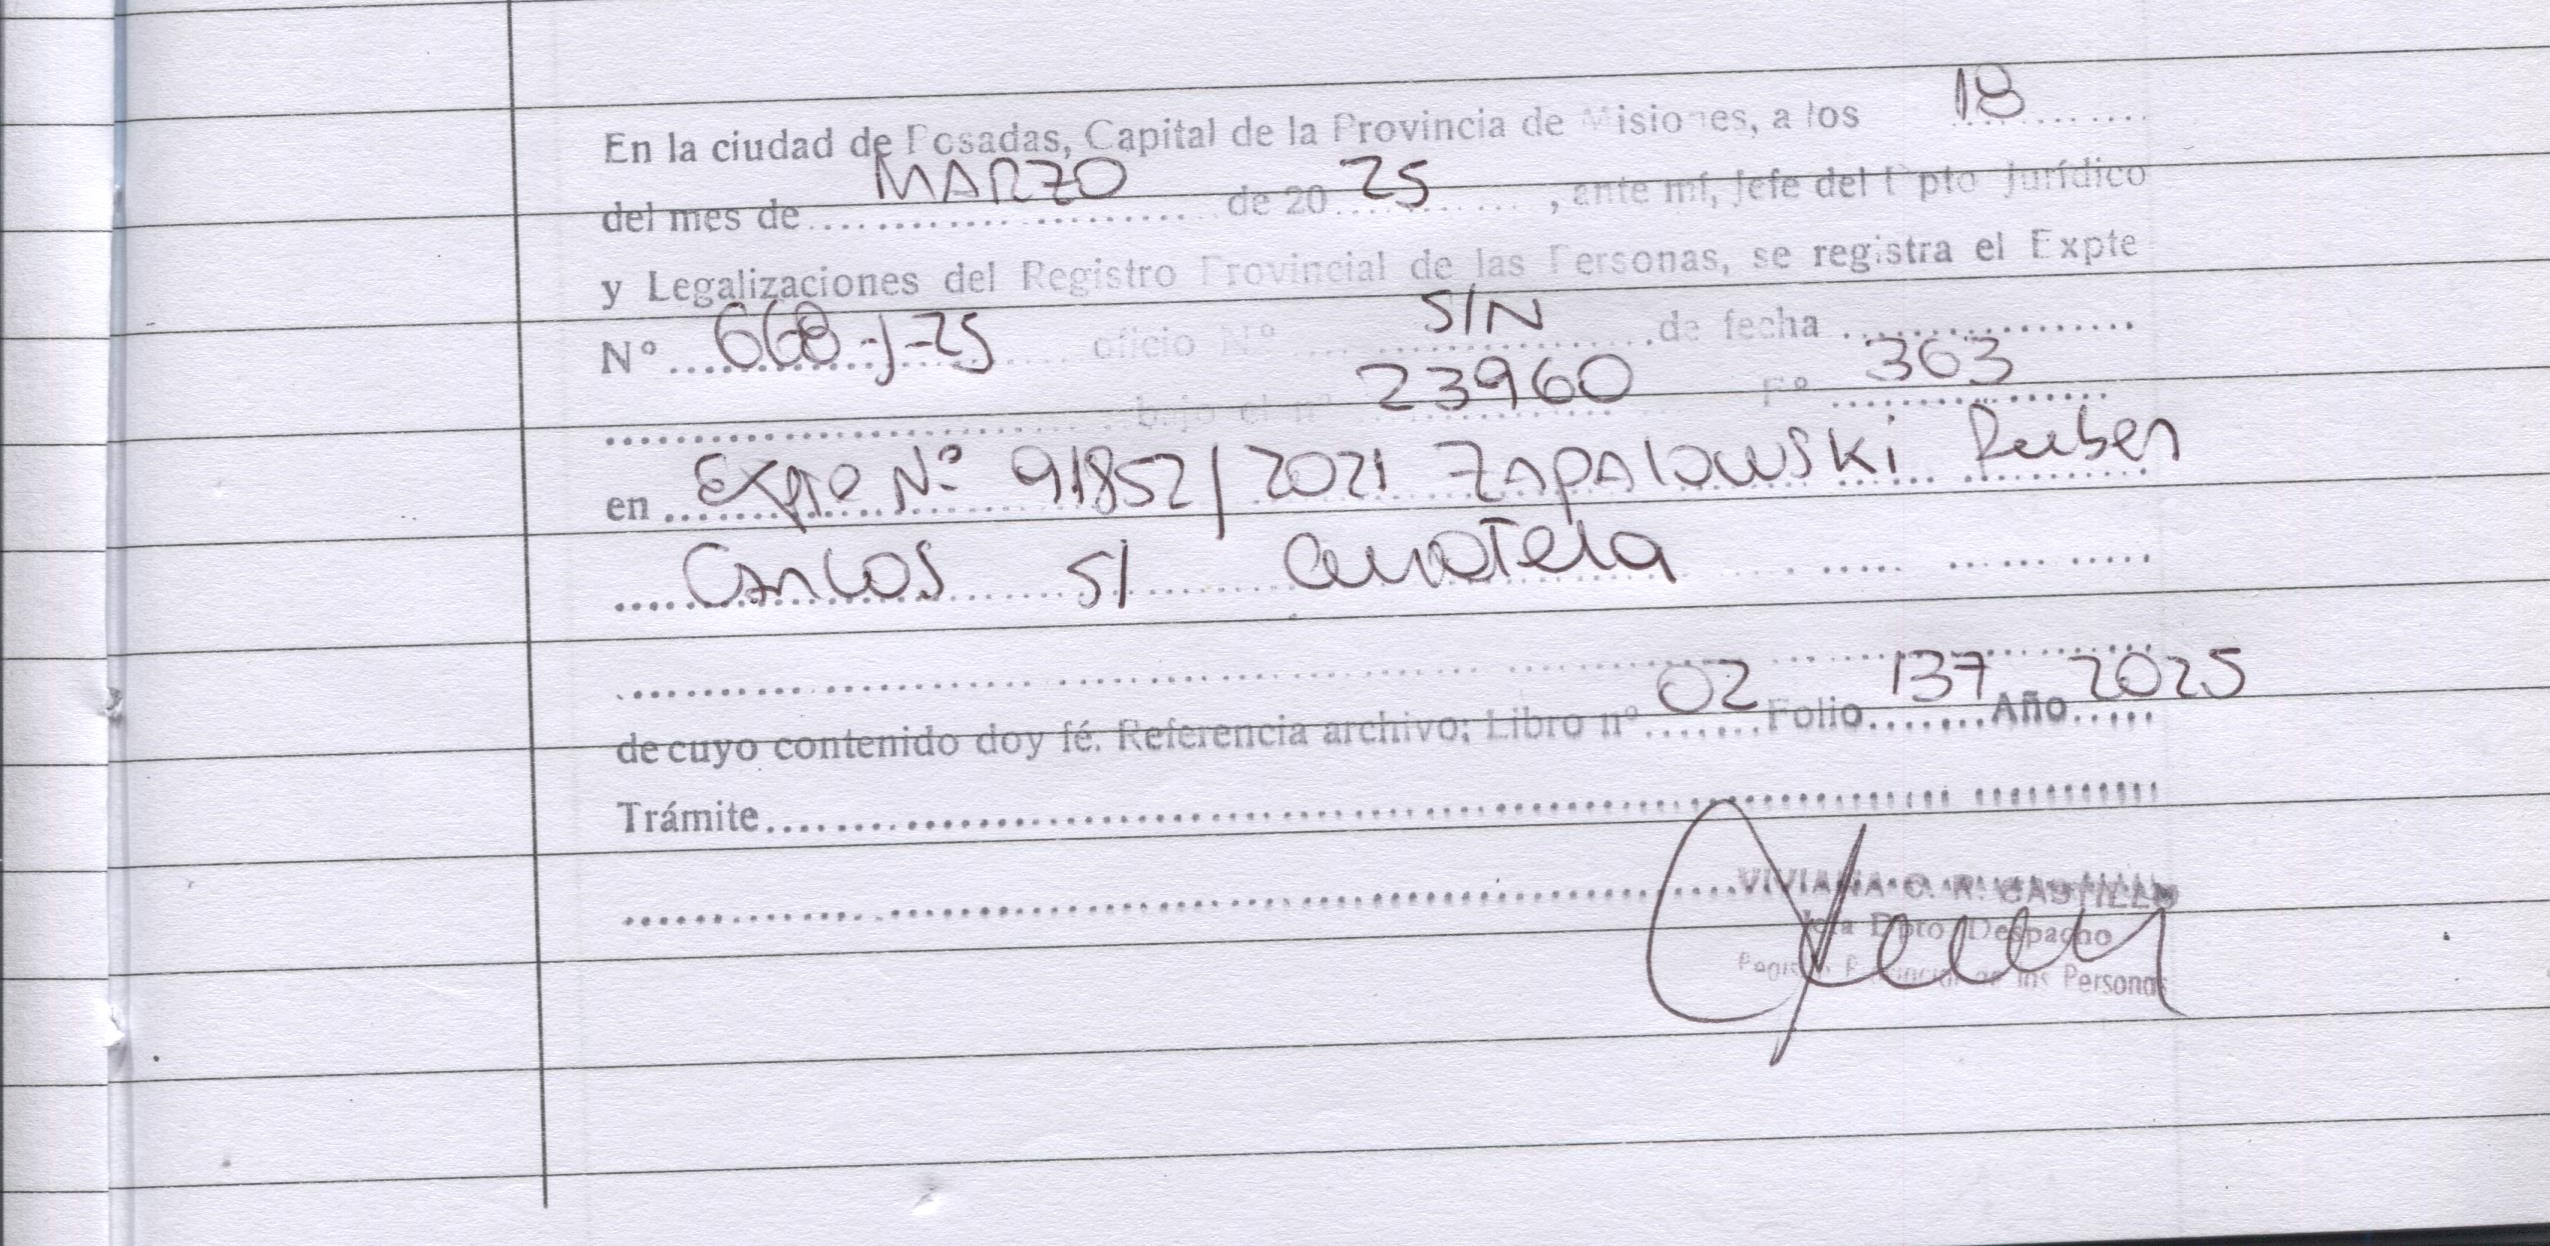 En la ciudad de Posadas, Capital de la Provincia de Misiones, a los 18
del mes de MARZO de 20 25, ante mí, Jefe del Dpto Jurídico
y Legalizaciones del Registro Provincial de las Personas, se registra el Expte
Nº 668-J-25 oficio Nº S/N de fecha
bajo el nº 23960 Fº 363
en Expte Nº 91852/2021 ZAPALOWSKI Ruben
Carlos S/ Curatela
de cuyo contenido doy fé. Referencia archivo; Libro nº 02 Folio 137 Año 2025
Trámite
VIVIANA C. R. CASTILLO
Jefa Dpto Despacho
Registro Provincial de las Personas